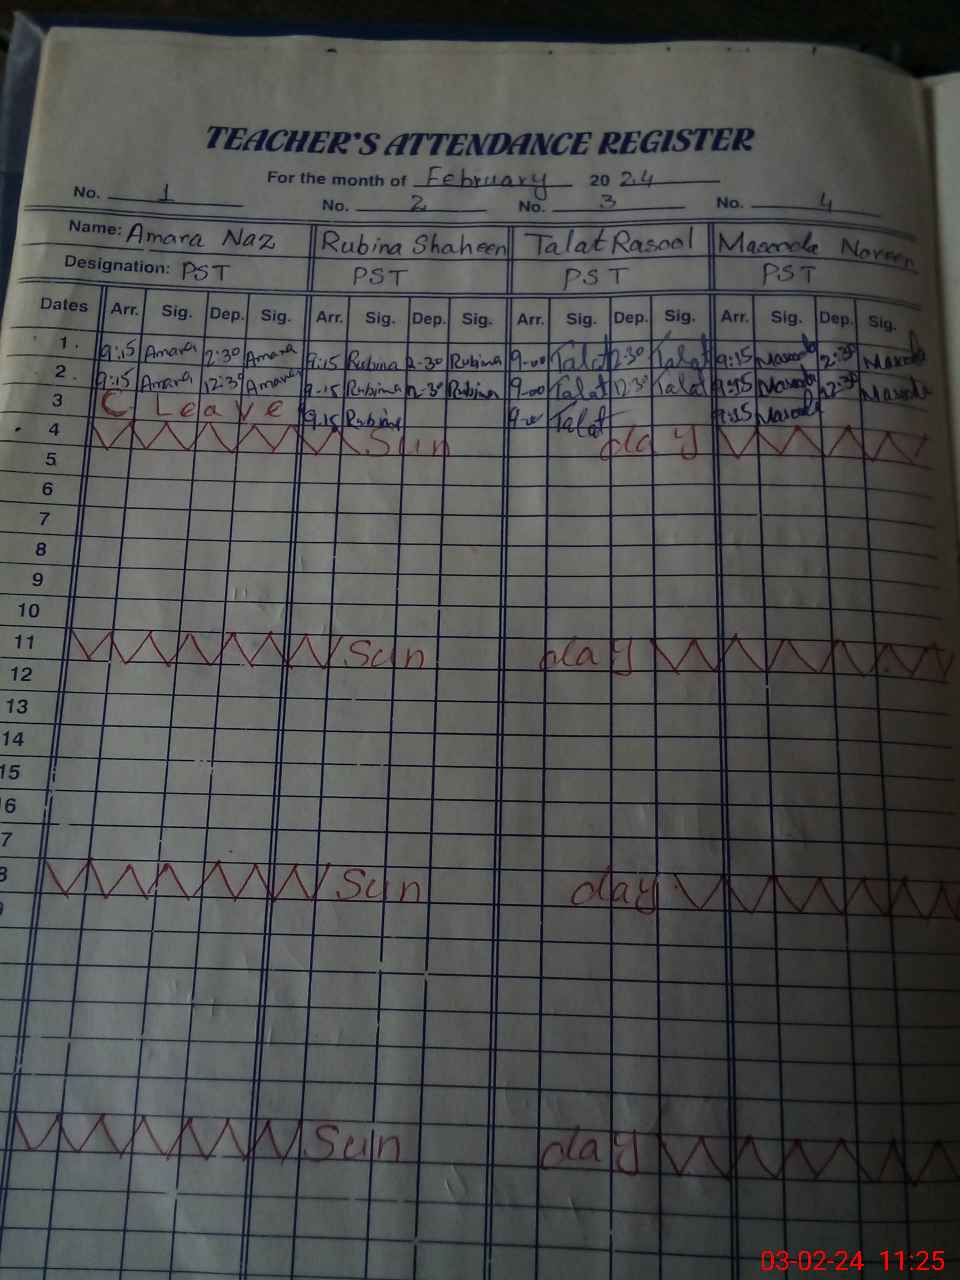 TEACHER'S ATTENDANCE REGISTER
For the month of February 2024
No. 1 No. 2 No. 3 No. 4
Name: Amara Naz Rubina Shaheen Talat Rasool Masooda Noreen
Designation: PST PST PST PST
Dates Arr. Sig. Dep. Sig. Arr. Sig. Dep. Sig. Arr. Sig. Dep. Sig. Arr. Sig. Dep. Sig.
1. 9:15 Amara 2:30 Amara 9:15 Rubina 2-30 Rubina 9-00 Talat 2:30 Talat 9:15 Masooda 2:30 Masooda
2. 9:15 Amara 12:30 Amara 9-15 Rubina 12-30 Rubina 9-00 Talat 12:30 Talat 9:15 Masooda 12:30 Masooda
3 C Leave 9.15 Rubina 9-00 Talat 9:15 Masooda
4 Sun day
5
6
7
8
9
10
11 Sun day
12
13
14
15
6
7
8 Sun day
9
Sun day
03-02-24 11:25